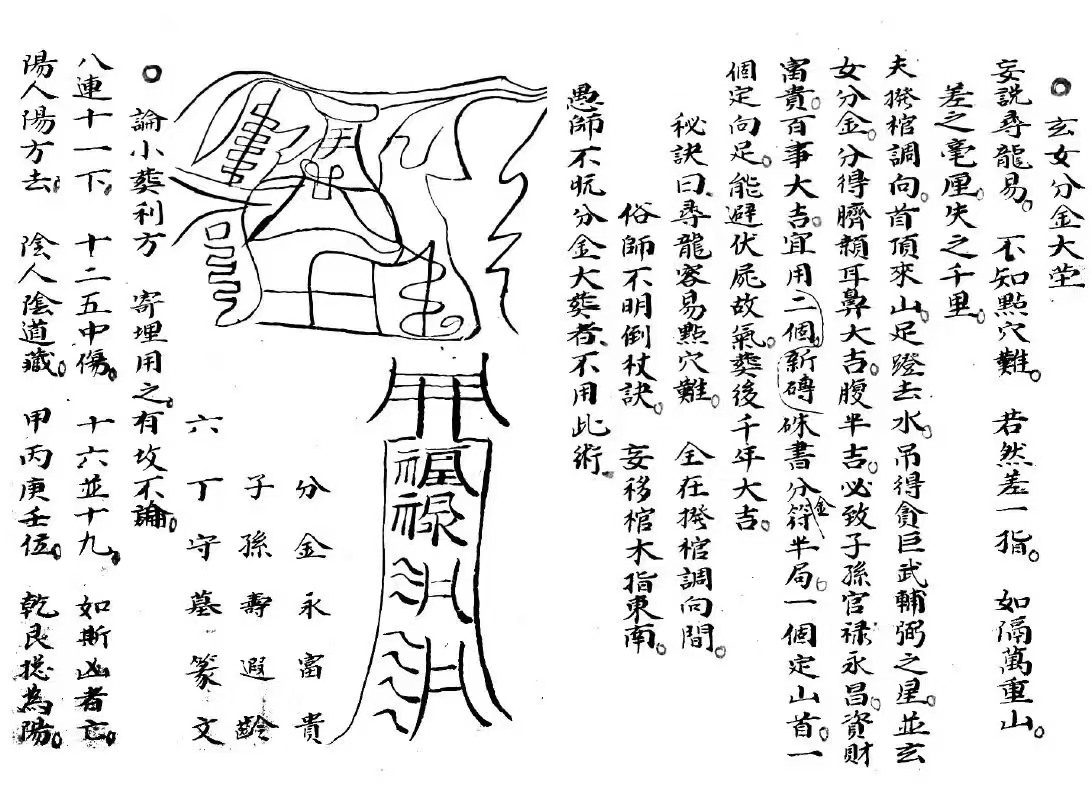 玄女分金大塟
妄說尋龍易。不知點穴難。若然差一指。如隔萬重山。
差之毫厘。失之千里。
夫撥棺調向。首頂來山。足蹬去水。吊得貪巨武輔弼之星。並玄
女分金。分得臍顙耳鼻大吉。腹半吉。必致子孫官祿永昌。資財
富貴。百事大吉。宜用二個新磚硃書分金符半局。一個定山首。一
個定向足。能避伏屍故氣。葬後千年大吉。
秘訣曰、尋龍容易點穴難。全在撥棺調向間。
俗師不明倒杖訣。妄移棺木指東南。
愚師不晥分金大葬者、不用此術。
福祿
分金永富貴
子孫壽遐齡
六丁守墓篆文
論小葬利方 寄埋用之。有坟不論。
八連十一下。十二五中傷。十六並十九。如斯凶者亡。
陽人陽方去。陰人陰道藏。甲丙庚壬位。乾艮揔為陽。